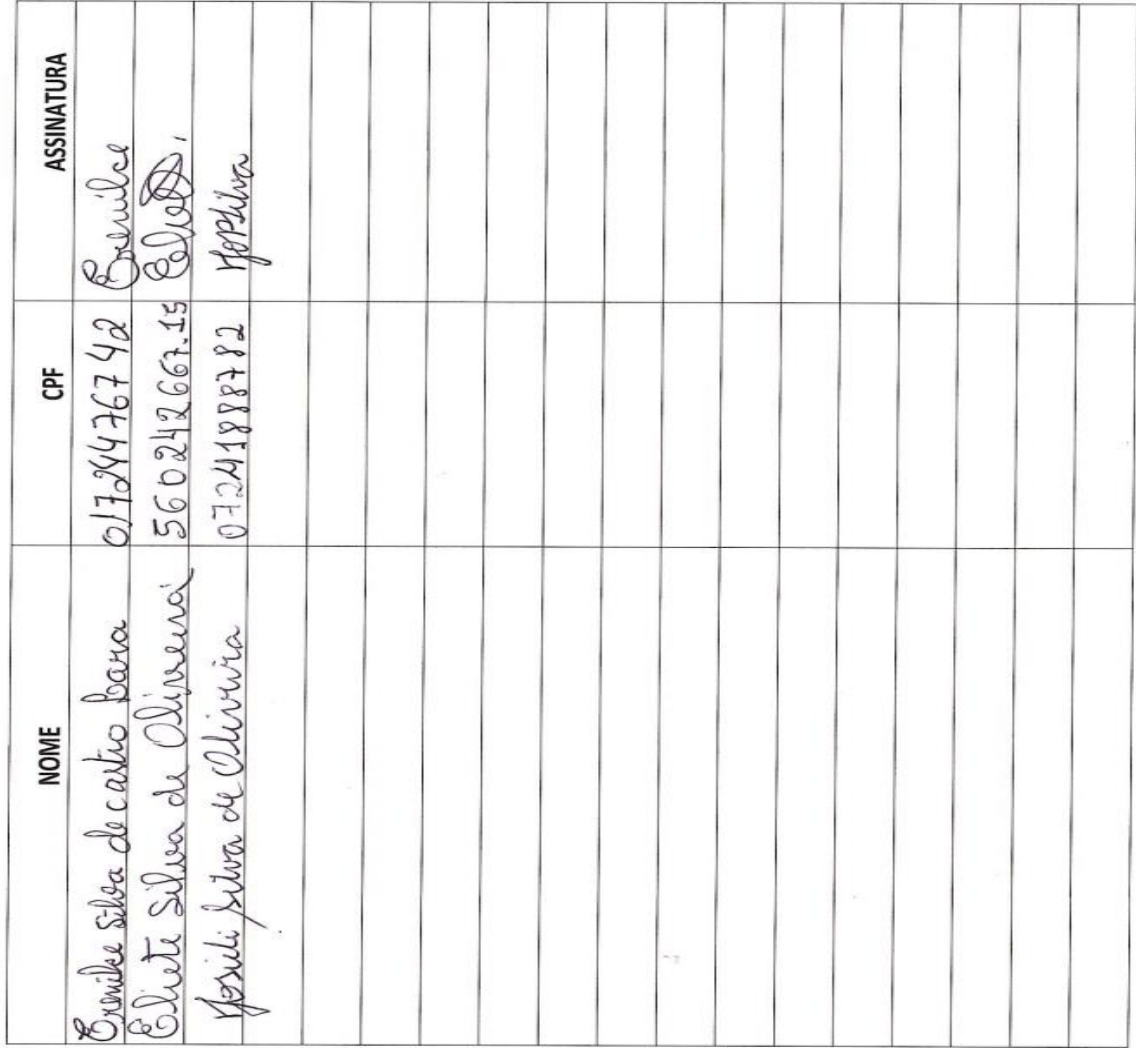 NOME CPF ASSINATURA
Erenilce Silva de castro 01724476742 Erenilce
Eliete Silva de Oliveira 560242667.15
Silva de Oliveira 07241888782